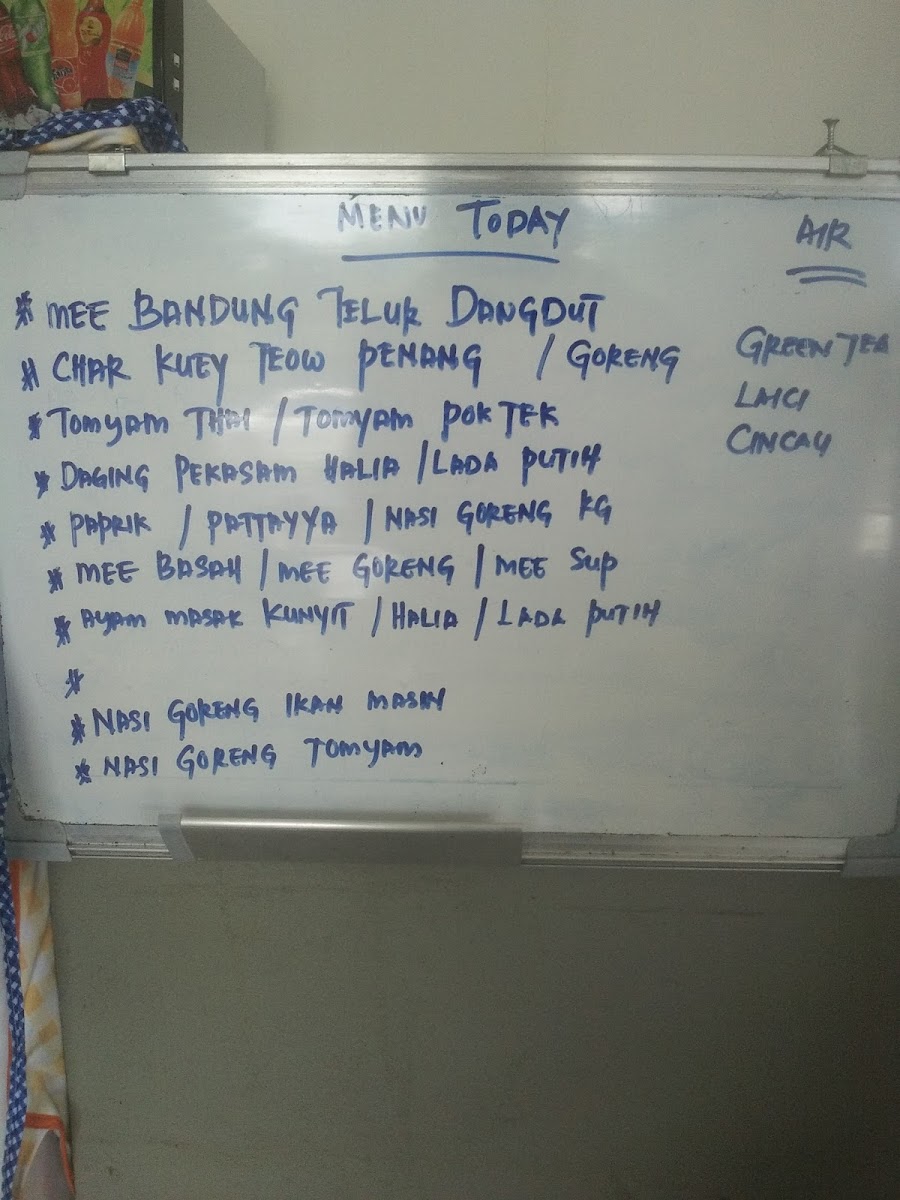 MENU TODAY
* MEE BANDUNG TELUR DANGDUT
* CHAR KUEY TEOW PENANG / GORENG
* TOMYAM THAI / TOMYAM POKTEK
* DAGING PEKASAM HALIA / LADA PUTIH
* PAPRIK / PATTAYYA / NASI GORENG KG
* MEE BASAH / MEE GORENG / MEE SUP
* AYAM MASAK KUNYIT / HALIA / LADA PUTIH
*
* NASI GORENG IKAN MASIN
* NASI GORENG TOMYAM
AIR
GREEN TEA
LAICI
CINCAU